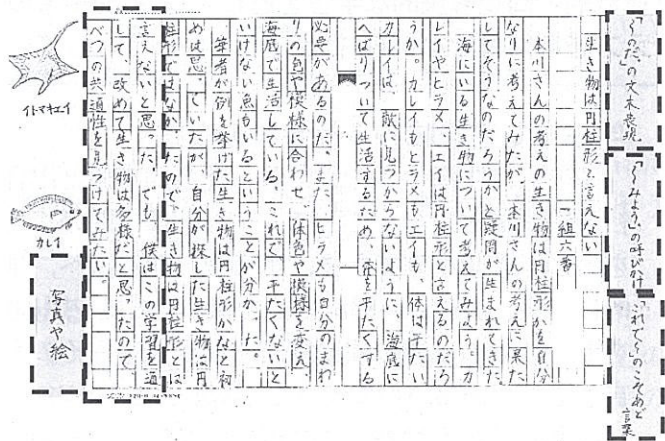 「〜のだ」の文末表現
「〜みよう」の呼びかけ
「これで〜」のこそあど言葉
生き物は円柱形と言えない
一組六番
本川さんの考えの生き物は円柱形かを自分
なりに考えてみたが、本川さんの考えに果た
してそうなのだろうかと疑問が生まれてきた。
海にいる生き物について考えてみよう。カ
レイやヒラメ、エイは円柱形と言えるのだろ
うか。カレイもヒラメもエイも、体は平たい
カレイは、敵に見つからないように、海底に
へばりついて生活するため、体を平たくする
必要があるのだ。また、ヒラメも自分のまわ
りの色や模様に合わせ、体色や模様を変え、
海底で生活している。これで、平たくないと
いけない魚もいるということが分かった。
筆者が例を挙げた生き物は円柱形かなと初
めは思っていたが、自分が探した生き物は円
柱形ではなかったので、生き物は円柱形とは
言えないと思った。でも、僕はこの学習を通
して、改めて生き物は多様だと思ったので
べつの共通性を見つけてみたい。
イトマキエイ
カレイ
写真や絵